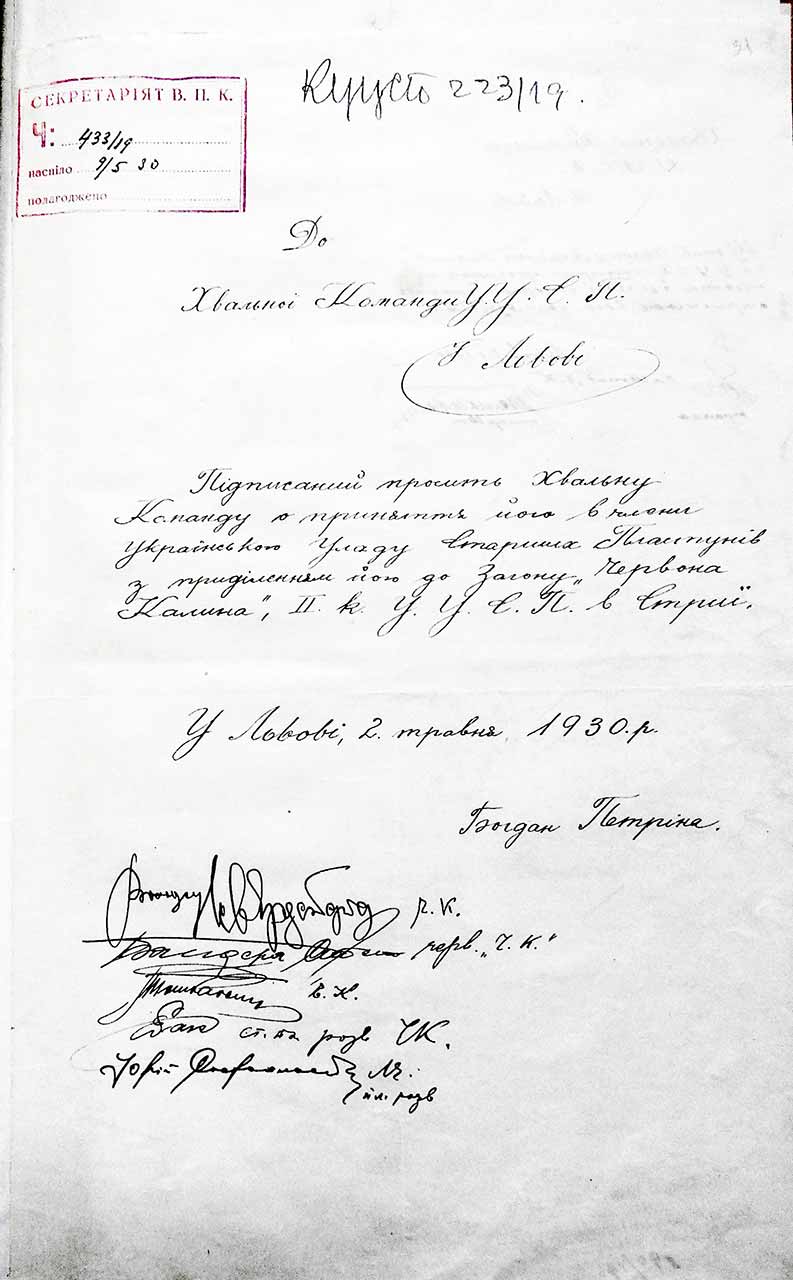 31
223/19.
СЕКРЕТАРІЯТ В. П. К.
Ч: 433/19
наспіло 9/5 30
полагоджено
До
Хвальної Команди У. У. С. П.
У Львові
Підписаний просить Хвальну
Команду о приняття його в члени
Українського Уладу Старших Пластунів
з приділенням його до Загону „Червона
Калина", II. к. У. У. С. П. в Стрию.
У Львові, 2. травня 1930. р.
Богдан Петріна.
Ч. К.
Бандера черв. „Ч. К."
Ч. К.
ст. пл. розв ЧК.
Юрій
пл. розв